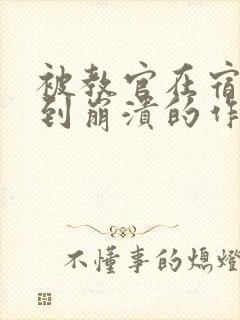 被教官在宿
到崩溃的作
不懂事的熄燈